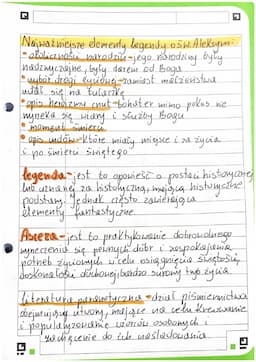 Najważniejsze elementy legendy o św. Aleksym:
• okoliczności narodzin - jego narodziny były
nadzwyczajne, były darem od Boga
• wybór drogi życiowej - zamiast małżeństwa
udał się na tułaczkę
• opis heroizmu cnut - bohater mimo pokus nie
wyrzeka się wiary i służby Bogu
• moment śmierci
• opis cudów - które miały miejsce i za życia
i po śmierci świętego
Legenda - jest to opowieść o postaci historycznej
lub uznanej za historyczną, mającą historyczne
podstawy. Jednak często zawierająca
elementy fantastyczne
Asceza - jest to praktykowanie dobrowolnego
wyrzeczenia się pewnych dóbr i zaspokajania
potrzeb życiowych w celu osiągnięcia świętości,
doskonałości duchowej, bardzo surowy tryb życia.
Literatura parenetyczna - dział piśmiennictwa
obejmujący utwory, mające na celu kreowanie
i popularyzowanie wzorców osobowych i
zachęcenie do ich naśladowania.